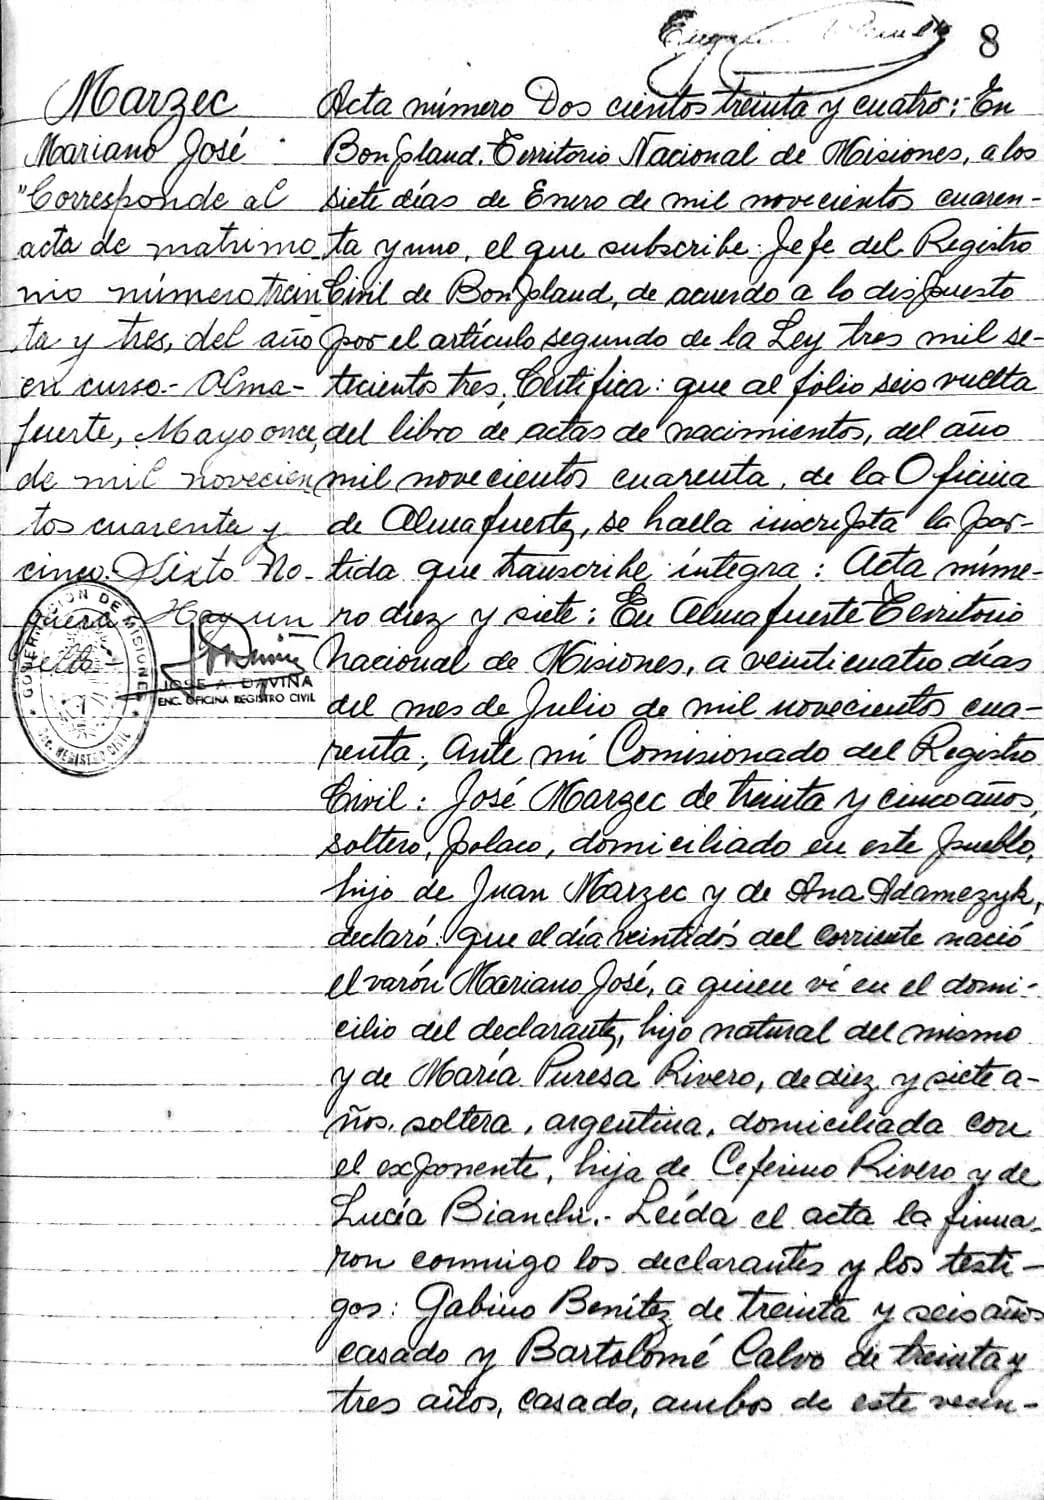 8
Marzec
Mariano José
"Corresponde al
acta de matrimo
nio número trein
ta y tres, del año
en curso.- Alma-
fuerte, Mayo once,
de mil novecien
tos cuarenta y
cinco. Sixto No-
guera Hay un
sello-
GOBERNACION DE MISIONES
REGISTRO CIVIL
JOSE A. DAVIÑA
ENC. OFICINA REGISTRO CIVIL
Acta número Dos cientos treinta y cuatro: En
Bonpland. Territorio Nacional de Misiones, a los
siete días de Enero de mil novecientos cuaren-
ta y uno, el que subscribe: Jefe del Registro
Civil de Bonpland, de acuerdo a lo dispuesto
por el artículo segundo de la Ley tres mil se-
tecientos tres, Certifica: que al folio seis vuelta
del libro de actas de nacimientos, del año
mil novecientos cuarenta, de la Oficina
de Almafuerte, se halla inscripta la par-
tida que transcribe íntegra: Acta núme-
ro diez y siete: En Almafuerte Territorio
Nacional de Misiones, a veinticuatro días
del mes de Julio de mil novecientos cua-
renta, ante mí Comisionado del Registro
Civil: José Marzec de treinta y cinco años,
soltero, polaco, domiciliado en este pueblo,
hijo de Juan Marzec y de Ana Adamczyk,
declaró: que el día veintidós del corriente nació
el varón Mariano José, a quien ví en el domi-
cilio del declarante, hijo natural del mismo
y de María Puresa Rivero, de diez y siete a-
ños, soltera, argentina, domiciliada con
el exponente, hija de Ceferino Rivero y de
Lucía Bianchi.- Leída el acta la firma-
ron conmigo los declarantes y los testi-
gos: Gabino Benítez de treinta y seis años
casado y Bartolomé Calvo de treinta y
tres años, casado, ambos de este vecin-